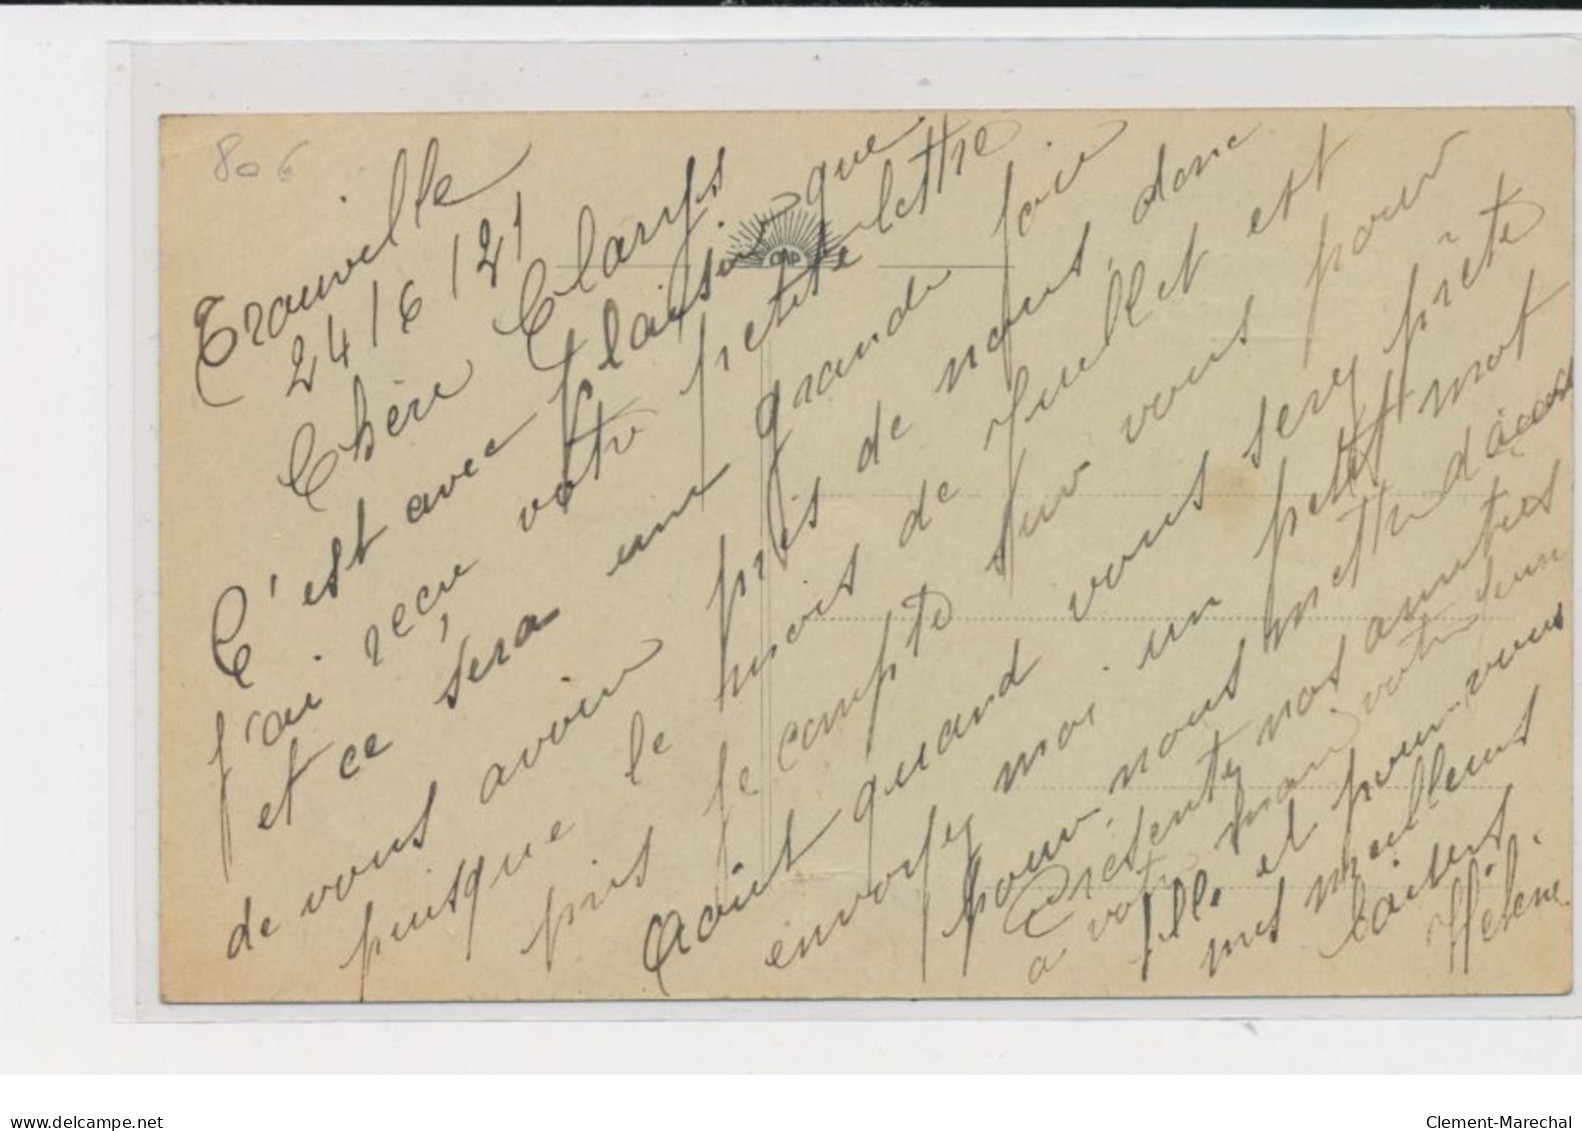 806
Trouville
24/6/21
Chère Clarys
C'est avec plaisir que
j'ai reçu votre petite lettre
et ce sera une grande joie
de vous avoir près de nous, donc
puisque le mois de Juillet est
pris je compte sur vous pour
Août quand vous serez prête
envoyez moi un petit mot
pour nous mettre d'accord
Présentez nos amitiés
a votre mari, votre
fille et pour vous
mes meilleurs
baisers
Hélène.
www.delcampe.net
Clement-Marechal